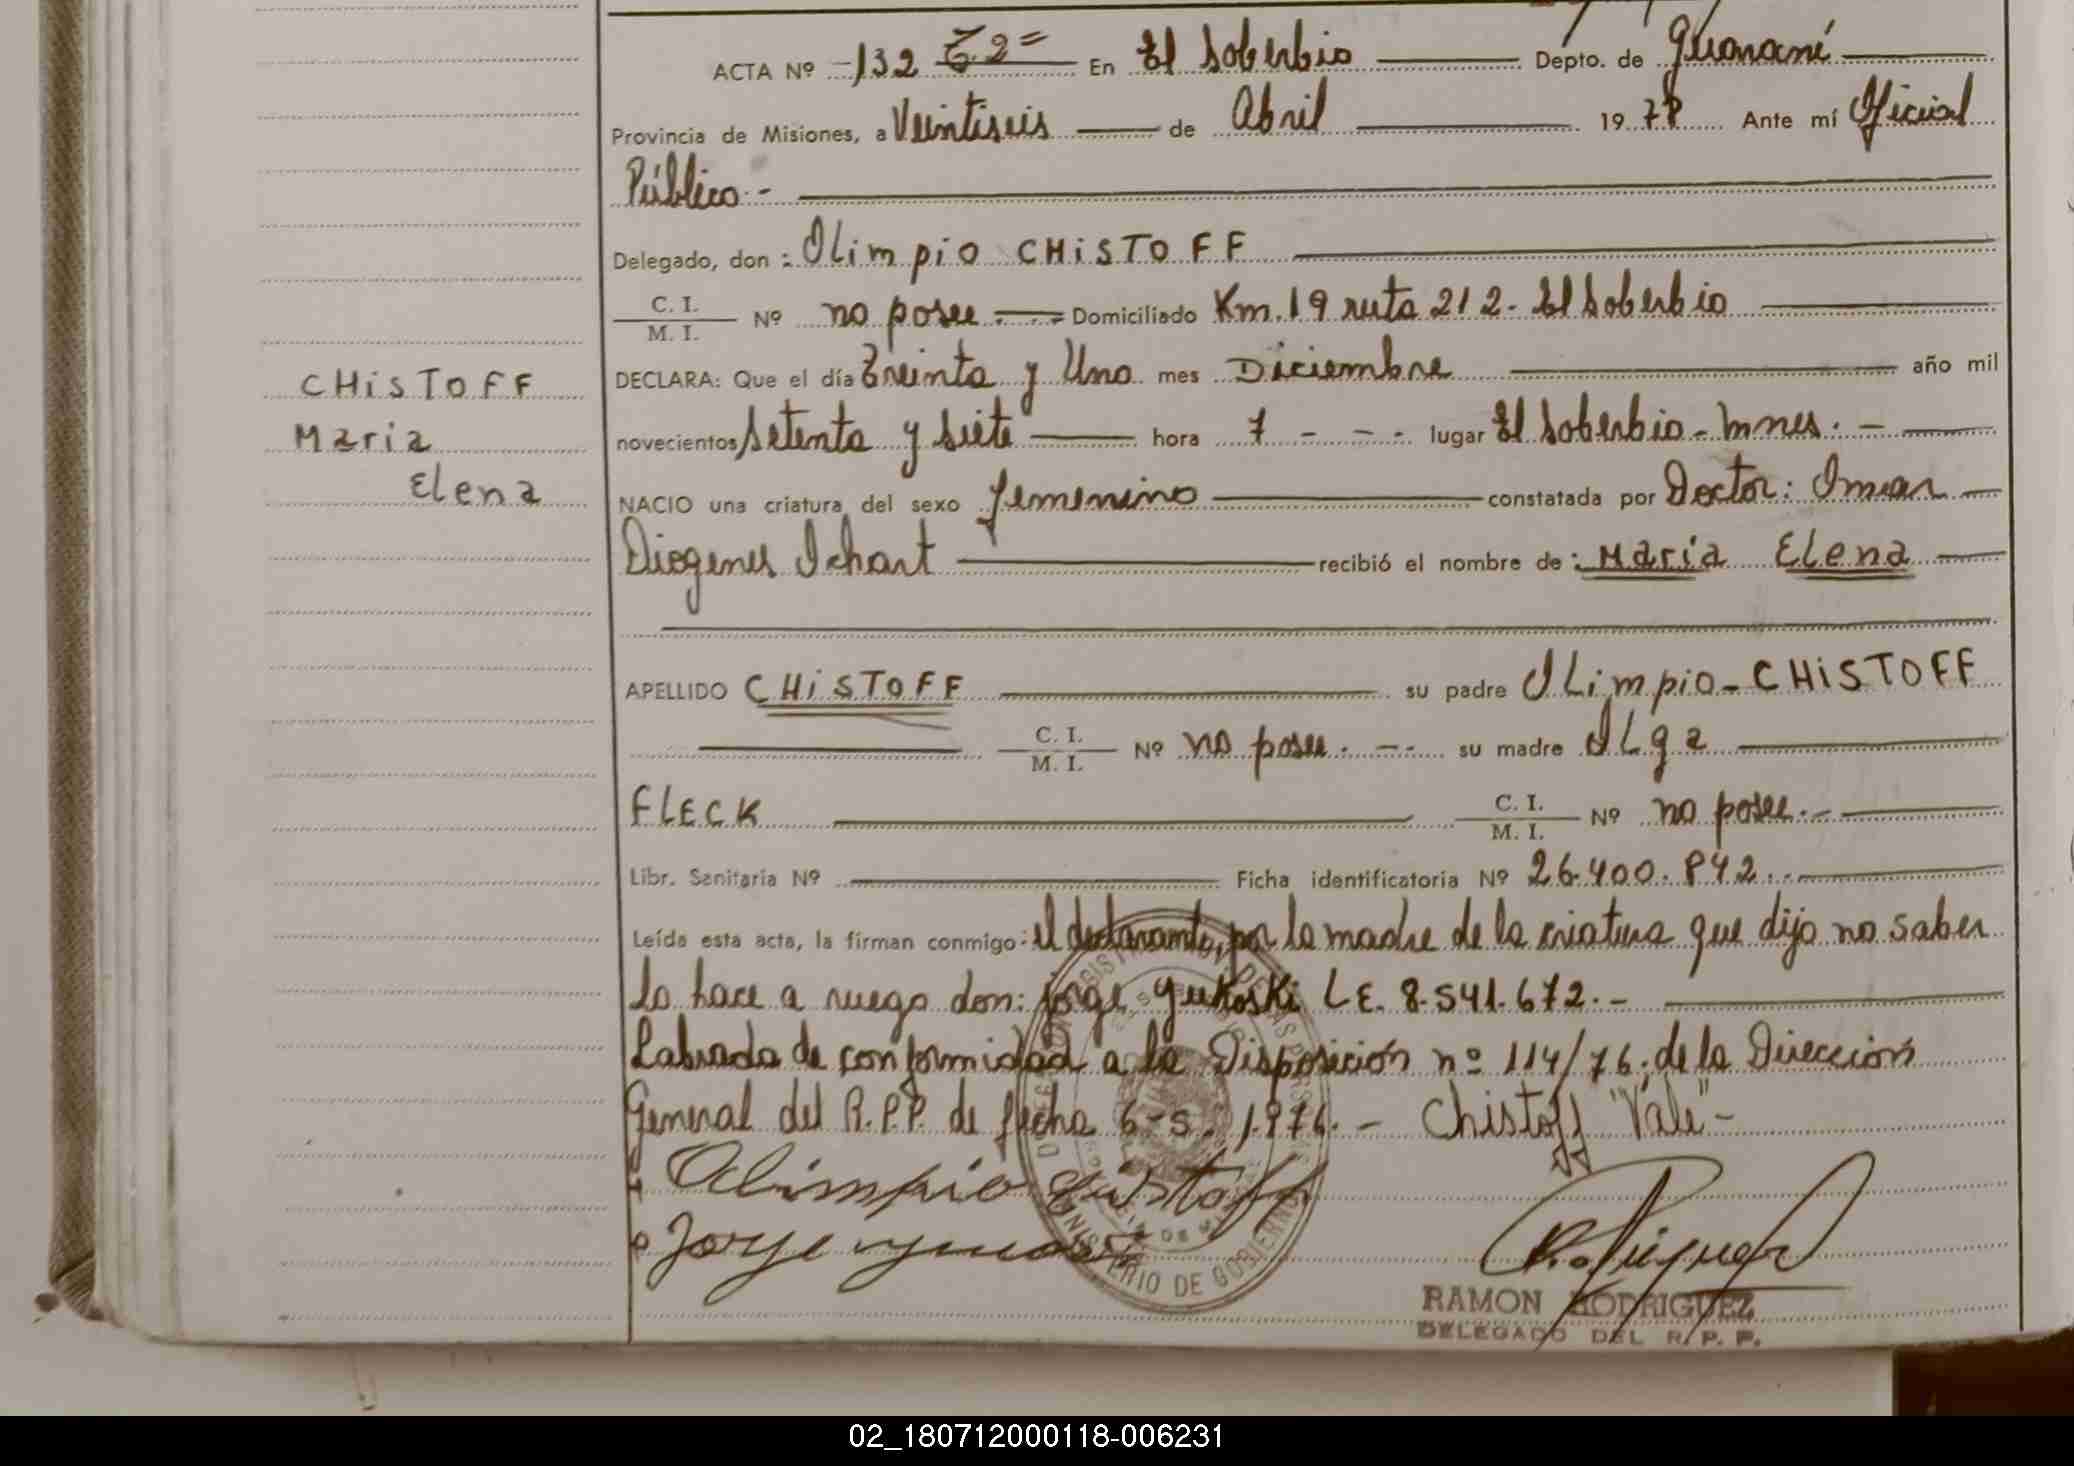 ACTA Nº -132 T. 2= En El Soberbio Depto. de Guaraní
Provincia de Misiones, a Veintiseis de Abril 19 78 Ante mí Oficial
Público.-
Delegado, don: Olimpio CHiSTOFF
C. I.
M. I. Nº no posee Domiciliado Km. 19 ruta 212- El Soberbio
DECLARA: Que el día Treinta y Uno mes Diciembre año mil
novecientos Setenta y Siete hora 7 - - - lugar El Soberbio - Mnes. -
NACIO una criatura del sexo femenino constatada por Doctor: Omar
Diogenes Ichart recibió el nombre de: María Elena
APELLIDO CHiSTOFF su padre OLimpio - CHiSTOFF
C. I.
M. I. Nº no posee. - - su madre OLga
FLECK C. I.
M. I. Nº no posee. -
Libr. Sanitaria Nº Ficha identificatoria Nº 26.400.842.
Leída esta acta, la firman conmigo: el declarante, por la madre de la criatura que dijo no saber
lo hace a ruego don: Jorge Yukoski L E. 8.541.672. -
Labrada de conformidad a la Disposición nº 114/76, de la Dirección
General del R.P.P. de fecha 6-5-1.976. - Chistoff "Vale" -
Olimpio Chistoff
Jorge
RAMON RODRIGUEZ
DELEGADO DEL R. P. P.
MINISTERIO DE GOBIERNO
CHiSTOFF
Maria
Elena
02_180712000118-006231